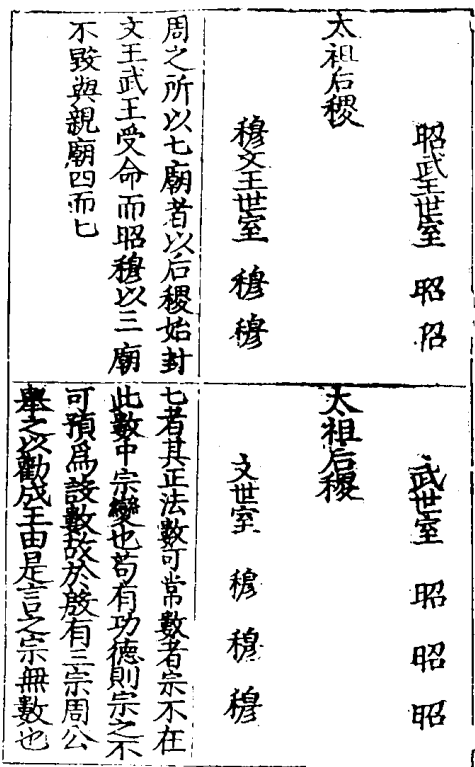 昭武王世室 昭 昭
太祖后稷
穆文王世室 穆 穆
周之所以七廟者以后稷始封
文王武王受命而昭穆以三廟
不毀與親廟四而七
武世室 昭 昭 昭
太祖后稷
文世室 穆 穆 穆
七者其正法數可常數者宗不在
此數中宗變也苟有功德則宗之不
可預爲設數故於殷有三宗周公
舉之以勸成王由是言之宗無數也